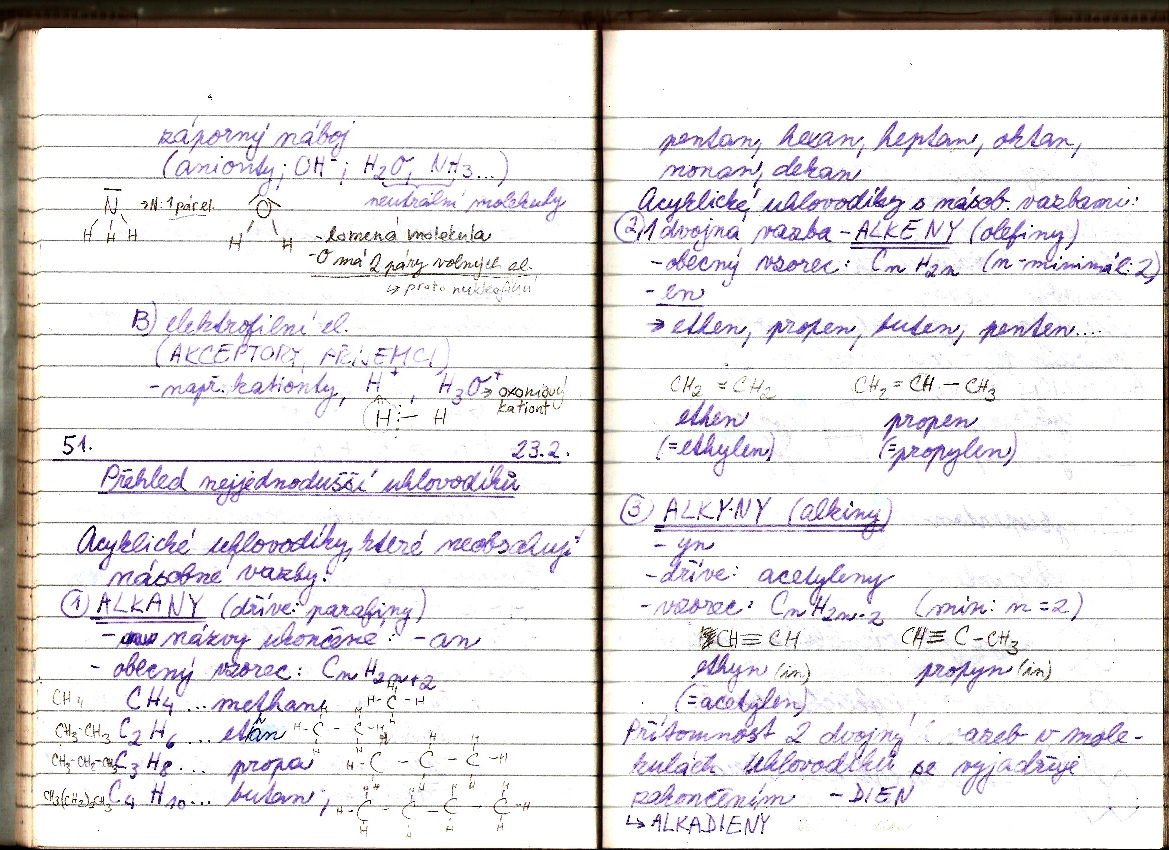 záporný náboj
(anionty; OH⁻; H₂O, NH₃...)
neutrální molekuly
N → N: 1 pár el.
H H H
O
H H
- lomená molekula
- O má 2 páry volných el.
↳ proto nukleofilní
B) elektrofilní el.
(AKCEPTORY, PŘÍJEMCI)
- např. kationty, H⁺, H₃O⁺ → oxoniový
kationt
H - H
51. 23.2.
Přehled nejjednodušší uhlovodíků
Acyklické uhlovodíky, které neobsahují
násobné vazby:
① ALKANY (dříve: parafiny)
- názvy ukončené: -an
- obecný vzorec: CnH2n+2
CH₄ CH₄ ... methan,
CH₃-CH₃ C₂H₆ ... etan
CH₃-CH₂-CH₃ C₃H₈ ... propa
CH₃(CH₂)₂CH₃ C₄H₁₀ ... butan,
pentan, hexan, heptan, oktan,
nonan, dekan
Acyklické uhlovodíky s násob. vazbami:
② 1 dvojná vazba - ALKENY (olefiny)
- obecný vzorec: CnH2n (n-minimál: 2)
- en
→ ethen, propen, buten, penten...
CH₂ = CH₂ CH₂ = CH - CH₃
ethen propen
(=ethylen) (=propylen)
③ ALKYNY (alkiny)
- yn
- dříve: acetyleny
- vzorec: CnH2n-2 (min: n = 2)
CH ≡ CH CH ≡ C - CH₃
ethyn (in) propyn (in)
(=acetylen)
Přítomnost 2 dvojný azeb v mole-
kulách uhlovodíků se vyjadřuje
zakončením - DIEN
↳ ALKADIENY